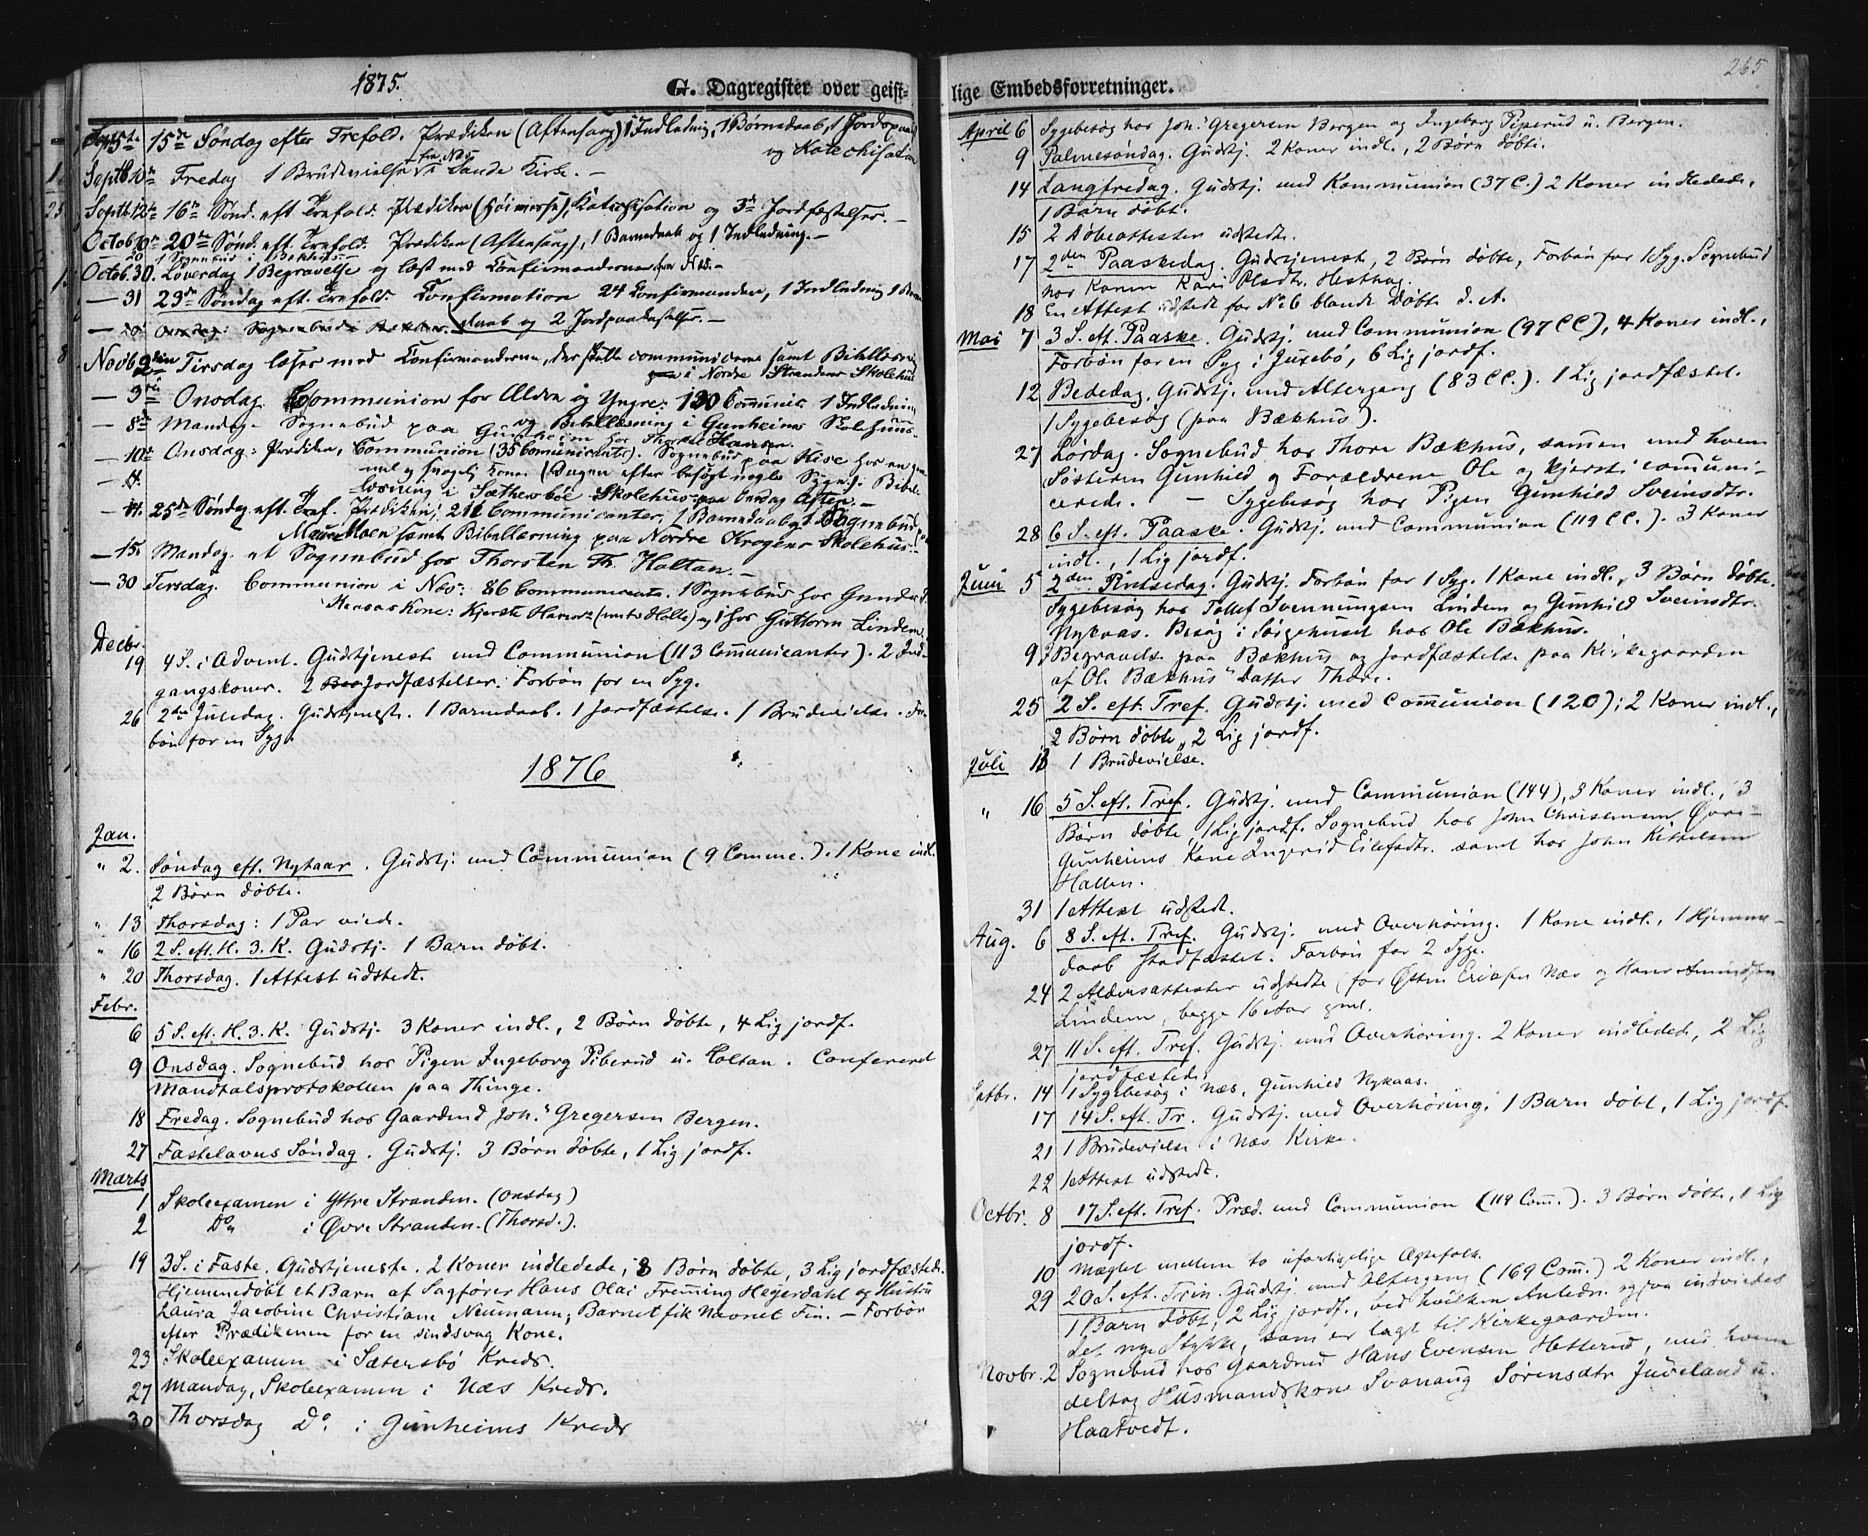 1875.
G. Dagregister over geist-
Sept. 5te 15de Søndag efter Trefold. Prædiken (Aftensang) 1 Indledning, 1 Børnedaab, 1 Jordpaak
og Katechisation
Septb. 10de Fredag 1 Brudevielse fra Næs i Sande Kirke. –
Septb. 12te 16de Sønd. eft. Trefold. Prædiken (Høimesse), Katechisation og 3de Jordfæstelser. –
Octob. 10de 20de Sønd. eft. Trefold. Prædiken (Aftensang), 1 Barnedaab og 1 Indledning. –
– 20 1 Sognebud i Bækhus –
Octob. 30. Løverdag 1 Begravelse og læst med Confirmanderne fra Næs. –
– 31 23de Søndag eft. Trefold. Confirmation 24 Confirmander, 1 Indledning 1 Barne
daab og 2 Jordpaakastelser. –
Novb. 2den Tirsdag læser med Confirmanderne, der skulle communicere samt Bibellæsning
i Nordre Strandens Skolehus
– 3die Onsdag. Communion for Ældre og Yngre: 130 Communic. 1 Indledning
og Bibellæsning i Gunheims Skolehuus.
– 8de Mandag. Sognebud paa Gunheim hos Thorste Hansen.
– 10de Onsdag: Prædiken, Communion (35 Communicanter). Sognebud paa Kise hos en gam
mel og svagelig Kone. (Dagen efter besøgt nogle Syge): Bibel
læsning i Sætersbøe Skolehus paa Onsdag Aften. –
– 14. 25de Søndag eft. Tref. Prædiken; 211 Communicanter, 1 Barnedaab, 1 Sognebud paa
Moen samt Bibellæsning paa Nordre Krogens Skolehus. –
– 15. Mandag. et Sognebud hos Thorsten Th. Holtan. –
– 30 Tirsdag. Communion i Næs: 86 Communicants. 1 Sognebud hos Gunder
Hansas Kone: Kjerste Haversdr (under Holte) og 1 hos Guttorm Linden.
Decbr.
19 4 S. i Advent. Gudstjeneste med Communion (113 Communicanter). 2 Ind-
gangskoner. 2 Jordfæstelser. Forbøn for en Syg.
26 2den Juledag. Gudstjeneste. 1 Barnedaab. 1 Jordfæstelse. 1 Brudevielse. For
bøn for en Syg.
1876
Jan.
" 2. Søndag eft. Nytaar. Gudstj. med Communion (9 Comm.). 1 Kone indl.
2 Børn døbte.
" 13 Thorsdag: 1 Par viede.
" 16 2 S. eft. H. 3. K. Gudstj. 1 Barn døbt.
" 20 Thorsdag. 1 Attest udstedt.
Febr.
6 5 S. eft. H. 3. K. Gudstj. 3 Koner indl., 2 Børn døbte, 4 Lig jordf.
9 Onsdag. Sognebud hos Pigen Ingeborg Piberud u. Holtan. Confereret
Mandtalsprotokollen paa Thinge.
18 Fredag. Sognebud hos Gaardmd Joh.s Gregersen Bergen.
27 Fastelavns Søndag. Gudstj. 3 Børn døbte, 1 Lig jordf.
Marts
1 Skoleexamen i Ytre Stranden. (Onsdag)
2 Do i Øvre Stranden. (Thorsd.).
19 3 S. i Faste. Gudstjeneste. 2 Koner indledede, 3 Børn døbte, 3 Lig jordfæstede.
Hjemmedøbt et Barn af Sagfører Hans Olai Fremming Heyerdahl og Hustru
Laura Jacobine Christiane Neumann; Barnet fik Navnet Fin. – Forbøn
efter Prædikenen for en sindsvag Kone.
23 Skoleexamen i Sætersbø Kreds.
27 Mandag, Skoleexamen i Næs Kreds.
30 Thorsdag Do i Gunheims Kreds
lige Embedsforretninger.
265
April 6 Sygebesøg hos Joh.s Gregersen Bergen og Ingeborg Piperud u. Bergen.
9 Palmesøndag. Gudstj. 2 Koner indl., 2 Børn døbte.
14 Langfredag. Gudstj. med Kommunion (37 C.) 2 Koner indledede,
1 Barn døbt.
15 2 Døbeattester udstedt.
17 2den Paaskedag. Gudstjeneste, 2 Børn døbte, Forbøn for 1 Syg. Sognebud
hos Konen Kari Olsdtr. Hesthag.
18 En Attest udstedt for No 6 blandt Døbte d. A.
Mai 7 3 S. eft. Paaske. Gudstj. med Communion (97 CC), 4 Koner indl.,
Forbøn for en Syg i Juxebø, 6 Lig jordf.
12 Bededag. Gudstj. med Altergang (83 CC.). 1 Lig jordfæstet.
1 Sygebesøg (paa Bækhus).
27 Lørdag. Sognebud hos Thore Bækhus, sammen med hvem
Søsteren Gunhild og Forældrene Ole og Kjersti communi-
cerede. – Sygebesøg hos Pigen Gunhild Sveinsdtr.
28 6 S. eft. Paaske. Gudstj. med Communion (119 CC.). 3 Koner
indl., 1 Lig jordf.
Juni 5 2den Pintsedag. Gudstj. Forbøn for 1 Syg. 1 Kone indl., 3 Børn døbte.
Sygebesøg hos Tollef Svennungsen Linden og Gunhild Sveinsdtr.
Nykaas. Besøg i Sørgehuset hos Ole Bækhus.
9 Begravelse paa Bækhus og Jordfæstelse paa Kirkegaarden
af Ole Bækhus' Datter Thore.
25 2 S. eft. Tref. Gudstj. med Communion (120); 2 Koner indl.,
2 Børn døbte, 2 Lig jordf.
Juli 13 1 Brudevielse.
" 16 5 S. eft. Tref. Gudstj. med Communion (144), 3 Koner indl., 3
Børn døbte, 1 Lig jordf. Sognebud hos John Christensen Øvre-
Gunheims Kone Ingerid Eilefsdtr. samt hos John Kittelsen
Hallen.
31 1 Attest udstedt.
Aug. 6 8 S. eft. Tref. Gudstj. med Overhøring. 1 Kone indl., 1 Hjemme-
daab stadfæstet. Forbøn for 2 Syge.
24 2 Aldersattester udstedte for Østen Eriksen Næs og Hans Amundsen
Linden, begge 16 Aar gml.
27 11 S. eft. Tref. Gudstj. med Overhøring. 2 Koner indledede, 2 Lig
jordfæstede.
Setbr. 14 1 Sygebesøg i Næs, Gunhild Nykaas.
17 14 S. eft. Tr. Gudstj. med Overhøring. 1 Barn døbt, 1 Lig jordf.
21 1 Brudevielse i Næs Kirke.
22 1 Attest udstedt.
Octbr. 8 17 S. eft. Tref. Præd. med Communion (119 Com.). 3 Børn døbte, 1 Lig
jordf.
10 Mæglet mellem to uforligelige Ægtefolk.
29 20 S. eft. Trin. Gudstj. med Altergang (169 Com.) 2 Koner indl.,
1 Barn døbt, 2 Lig jordf., ved hvilken Anledn. ogsaa indviedes
det nye Stykke, som er lagt til Kirkegaarden.
Novbr. 2 Sognebud hos Gaardmd Hans Evensen Hetterud, med hvem
deltog Husmandskone Svanaug Sørensdtr Juveland u.
Haatvedt.